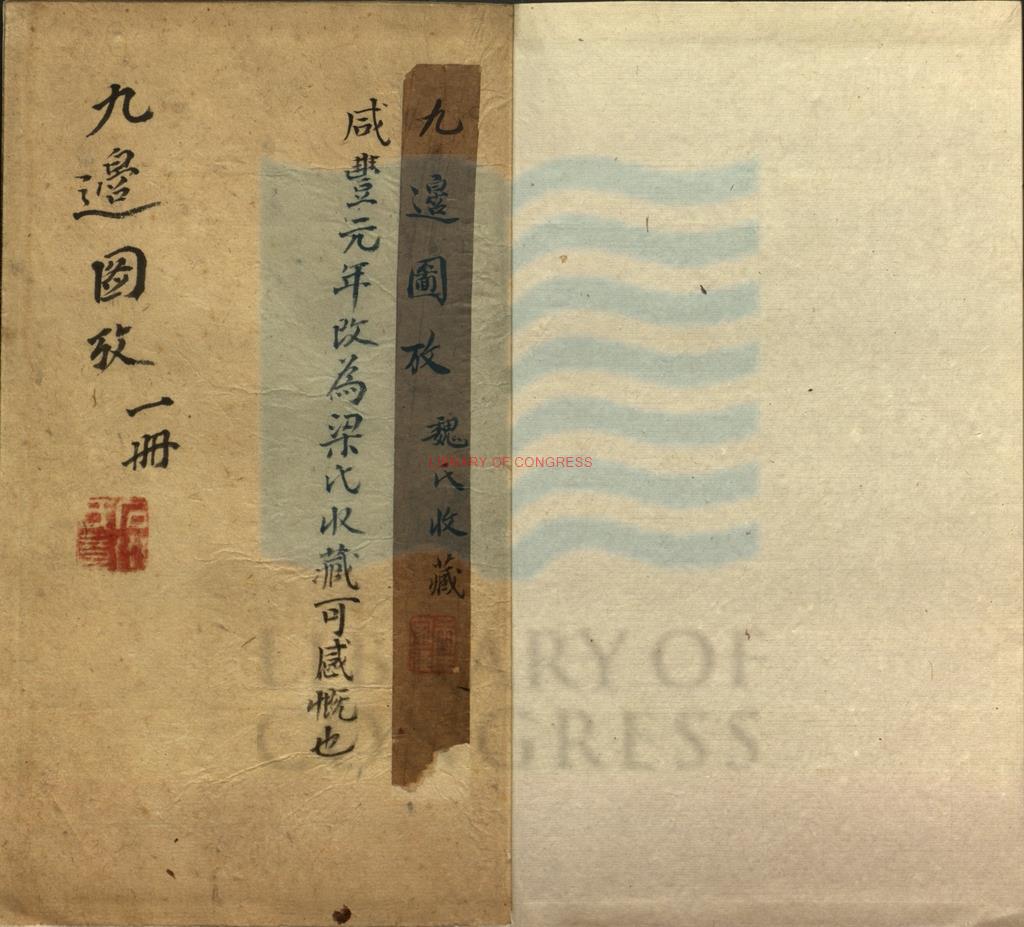 九邊圖攷 魏氏收藏
咸豐元年改為梁氏收藏可感慨也
九邊圖攷
一冊
LIBRARY OF CONGRESS
LIBRARY OF
CONGRESS